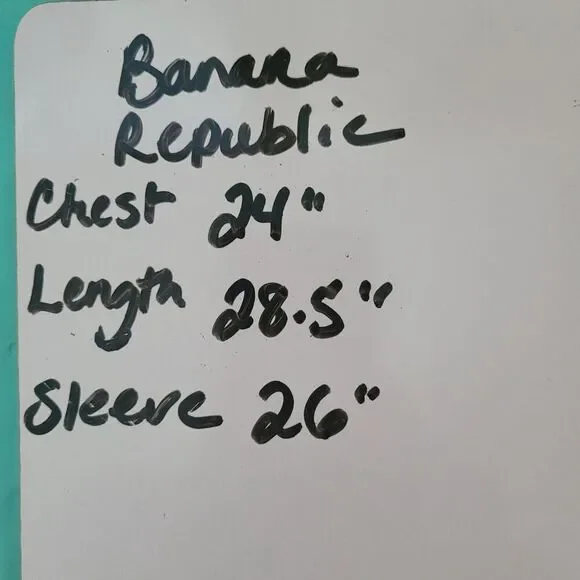 Banana
Republic
Chest 24"
Length 28.5"
Sleeve 26"